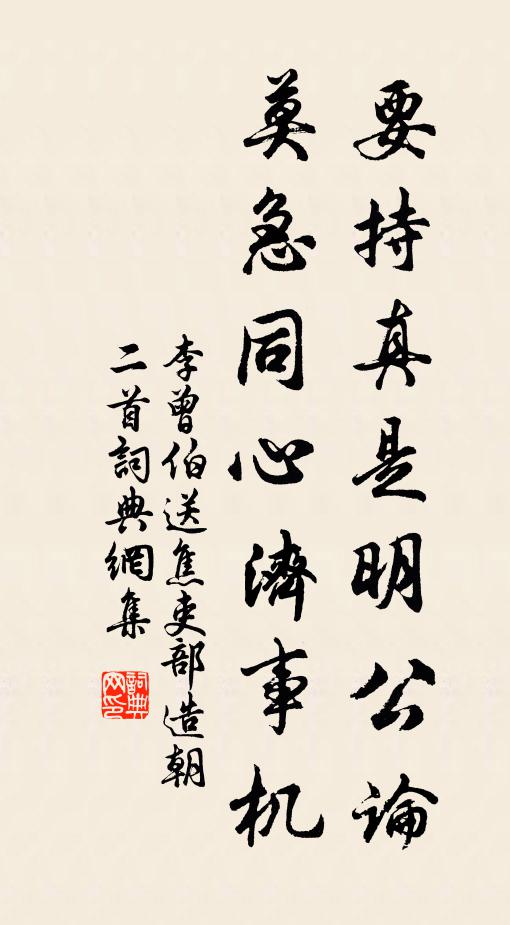 要持真是明公論
莫急同心濟事机
李曾伯送焦吏部造朝
二首詞典網集
詞典
网印